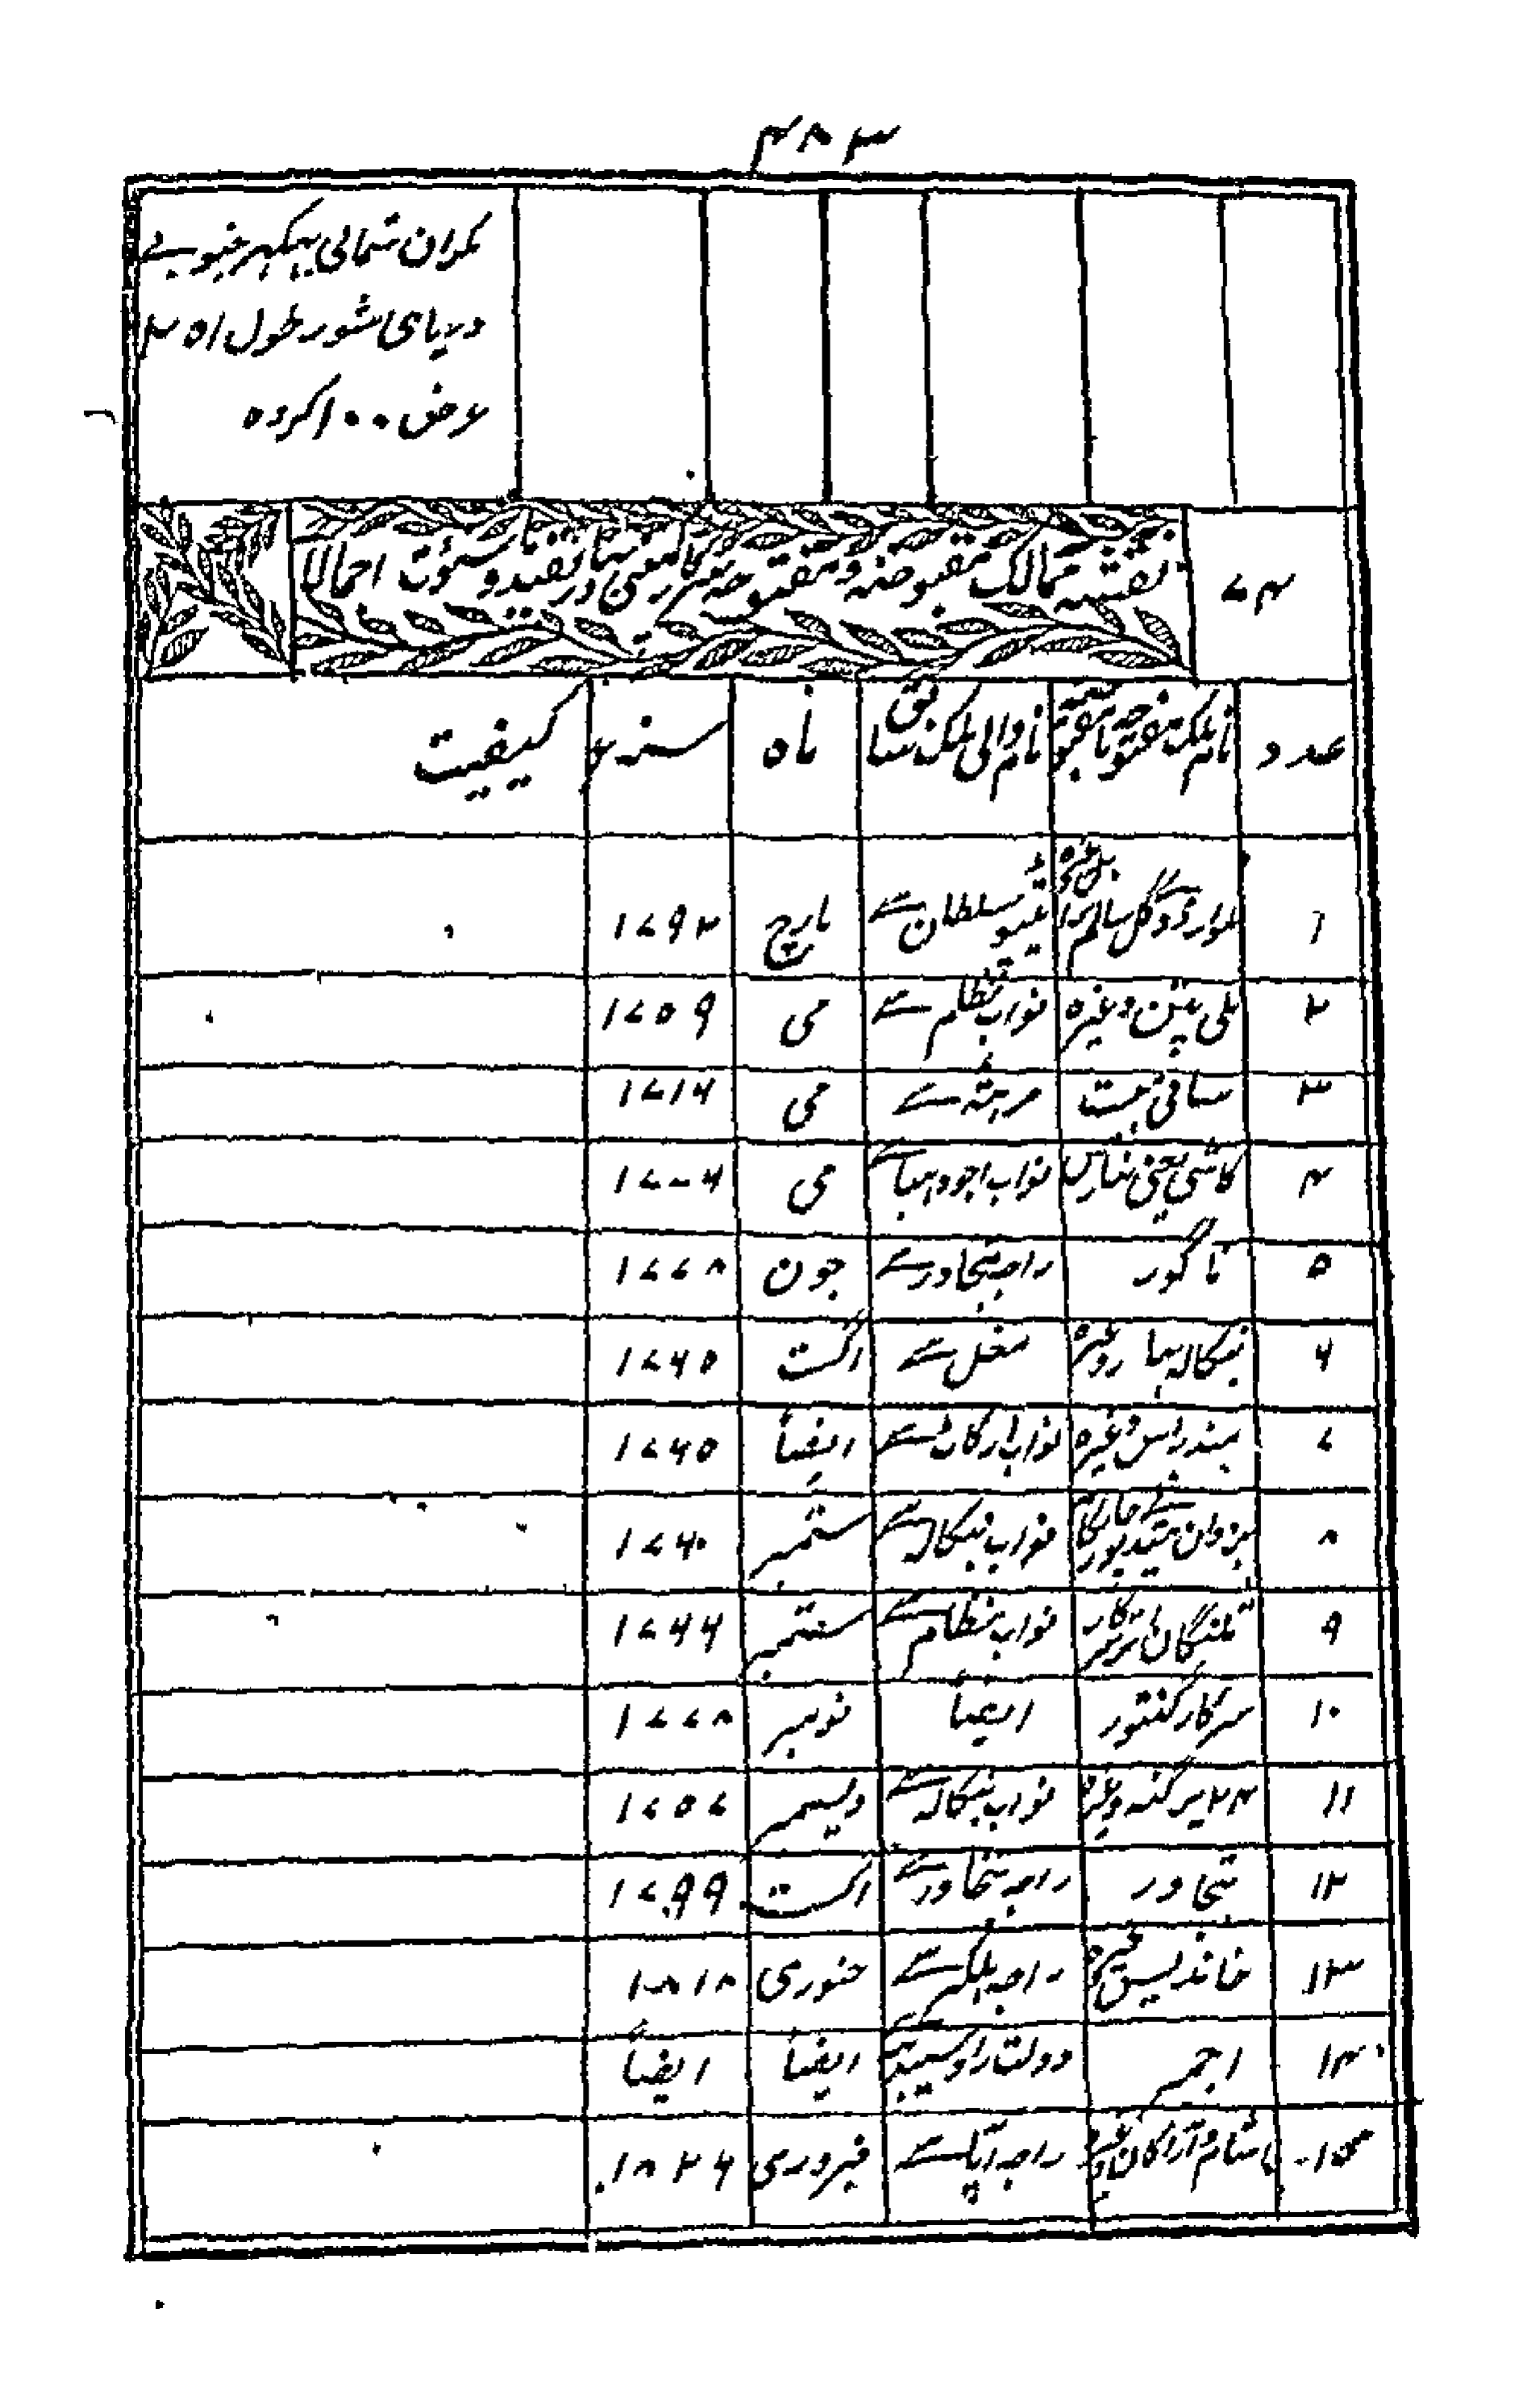 ۴۸۳
مکران شمالی پیکہر جنوبے
دریای شور طول ۲۵۱
عرض ۱۰۰ کروہ
۷۴ نقشہ ممالک مقبوضہ و مفتوحہ سرکار کمپنی در ہند تا بقید و سنوت اجمالا
عدد نام ملک مفتوحہ یا مقبوضہ نام والی ملک سابق ماہ سنہ ء کیفیت
۱ ٹیپو سلطان سے مارچ ۱۷۹۲
۲ ملی پٹن وغیرہ نواب نظام سے می ۱۷۵۹
۳ مرہٹہ سے می ۱۷۱۶
۴ کاشی یعنی بنارس نواب اجودہیا سے می ۱۷۰۶
۵ ناگور راجہ تنجاور سے جون ۱۷۷۸
۶ بنگالہ بہار وغیرہ مغل سے اگست ۱۷۶۵
۷ مندراس وغیرہ نواب ارکاٹ سے ایضاً ۱۷۶۵
۸ بردوان نواب بنگالہ سے ستمبر ۱۷۶۰
۹ نواب نظام سے ستمبر ۱۷۶۶
۱۰ سرکار گنتور ایضاً نومبر ۱۷۷۸
۱۱ ۲۴ پرگنہ وغیرہ نواب بنگالہ سے دیسمبر ۱۷۵۷
۱۲ تنجاور راجہ تنجاور سے اگست ۱۷۹۹
۱۳ خاندیس وغیرہ راجہ ہلکر سے جنوری ۱۸۱۸
۱۴ اجمیر دولت راو سیندہیہ ایضاً ایضاً
۱۵ اشام و اراکان وغیرہ راجہ سے فبروری ۱۸۲۶